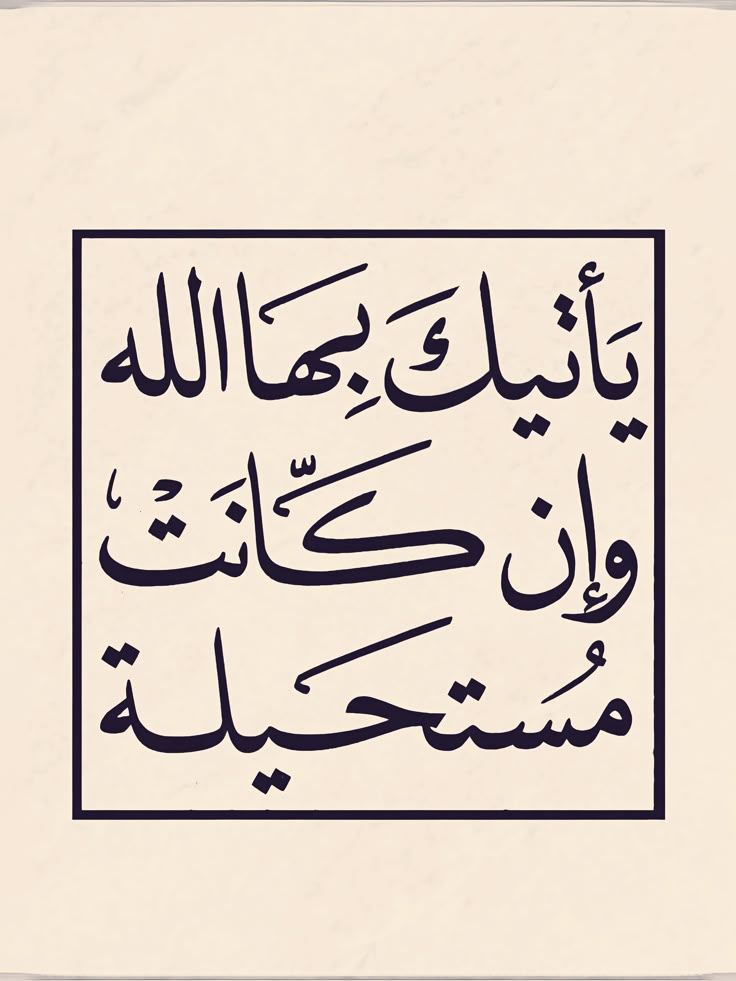 يَأتيكَ بِهَا الله
وإن كَّانَتْ
مُستحيلة